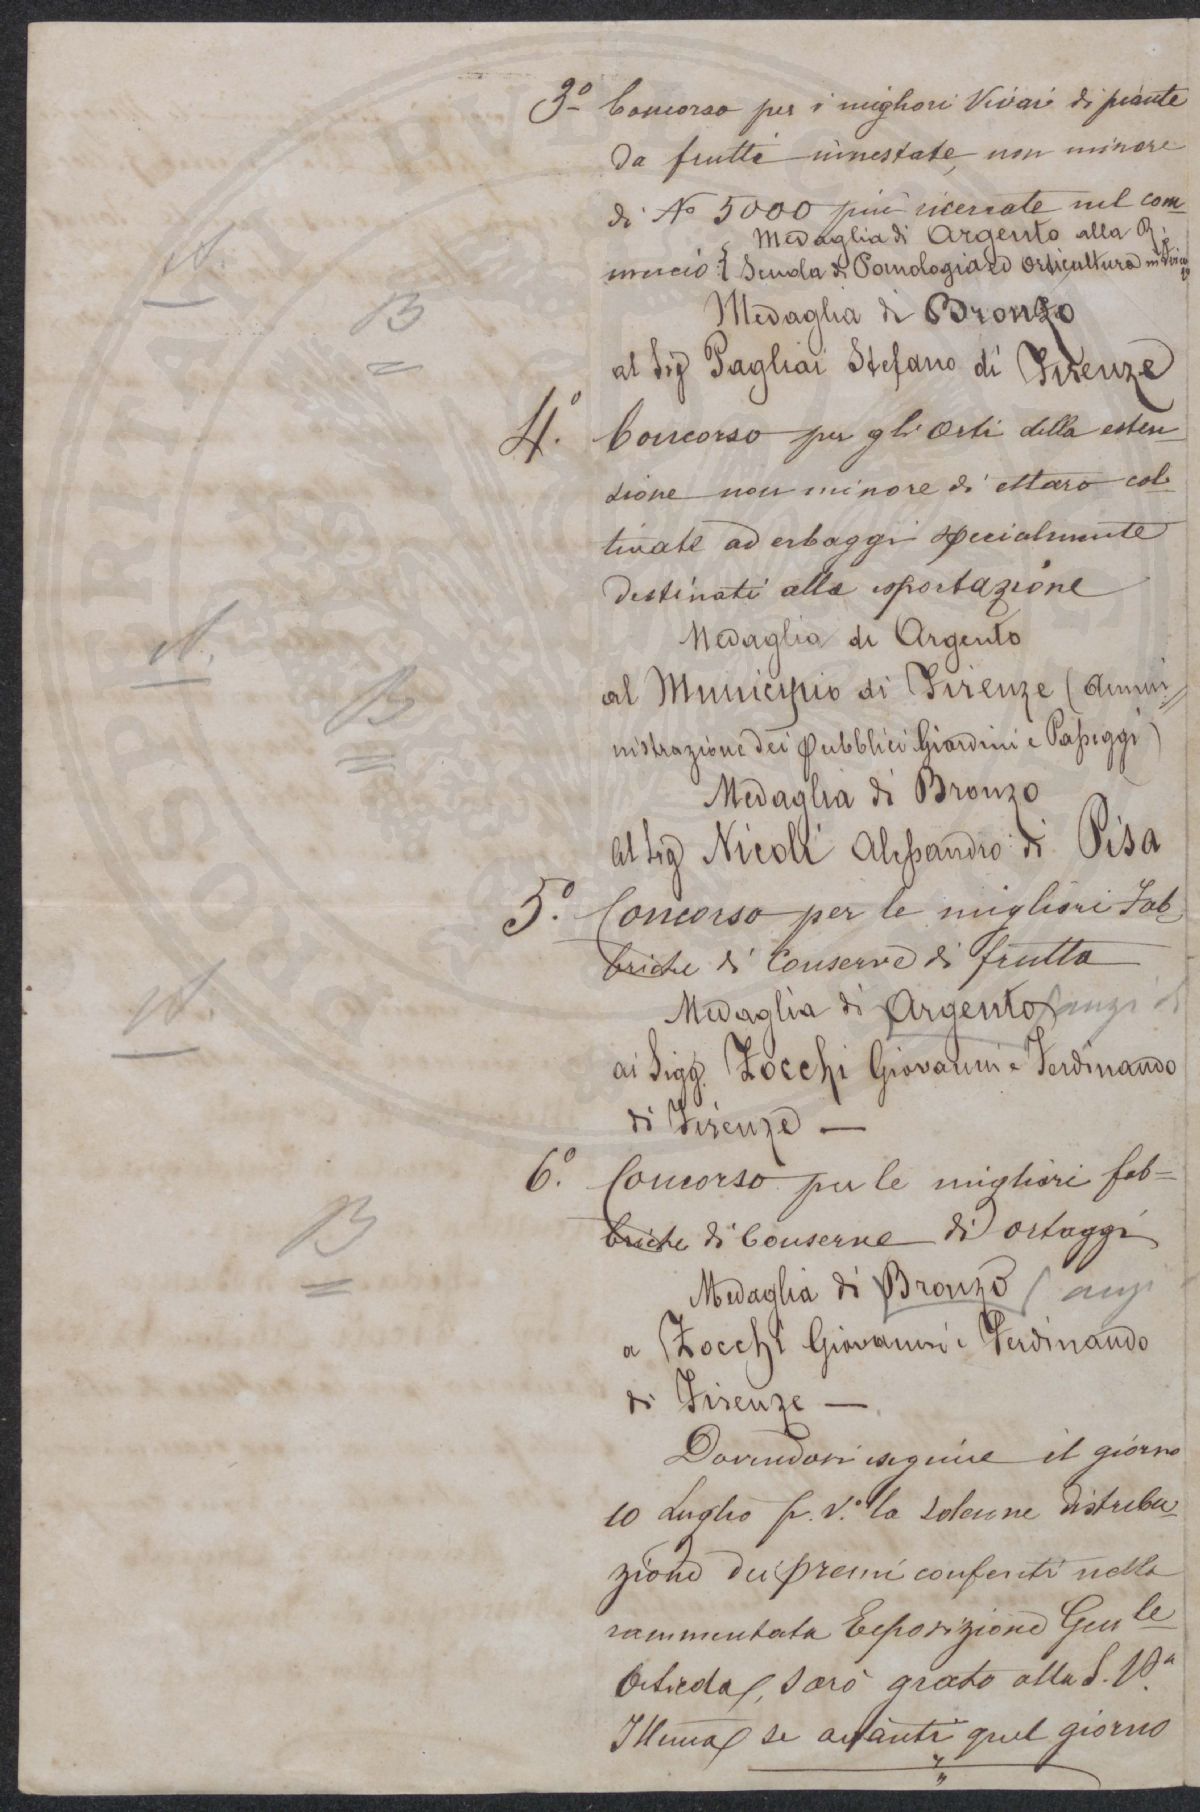 3º Concorso per i migliori Vivai di piante
da frutti innestate, non minore
di Nº 5000 più ricercate nel com
Medaglia di Argento alla R.
mercio: { Scuola di Pomologia ed Orticultura in Firenze
A.
B
Medaglia di Bronzo
al Sig Pagliai Stefano di Firenze
4.º Concorso per gli Orti della esten
sione non minore di ettaro col
tivate ad erbaggi specialmente
destinati alla esportazione
A.
Medaglia di Argento
al Municipio di Firenze (Ammi
nistrazione dei pubblici Giardini e Passeggi)
B
Medaglia di Bronzo
Al Sig Nicoli Alessandro di Pisa
5.º Concorso per le migliori Fab
briche di Conserve di frutta
A.
Medaglia di (Argento) (anzi di
ai Sigg. Zocchi Giovanni e Ferdinando
di Firenze —
6.º Concorso per le migliori fab=
briche di Conserve di Ortaggi
B
Medaglia di (Bronzo) (anzi
a Zocchi Giovanni e Ferdinando
di Firenze —
Dovendosi eseguire il giorno
10 Luglio p. v.º la solenne distribu
zione dei premi conferiti nella
rammentata Esposizione Genle
Orticola, sarò grato alla S. Vª.
Illma se avanti quel giorno